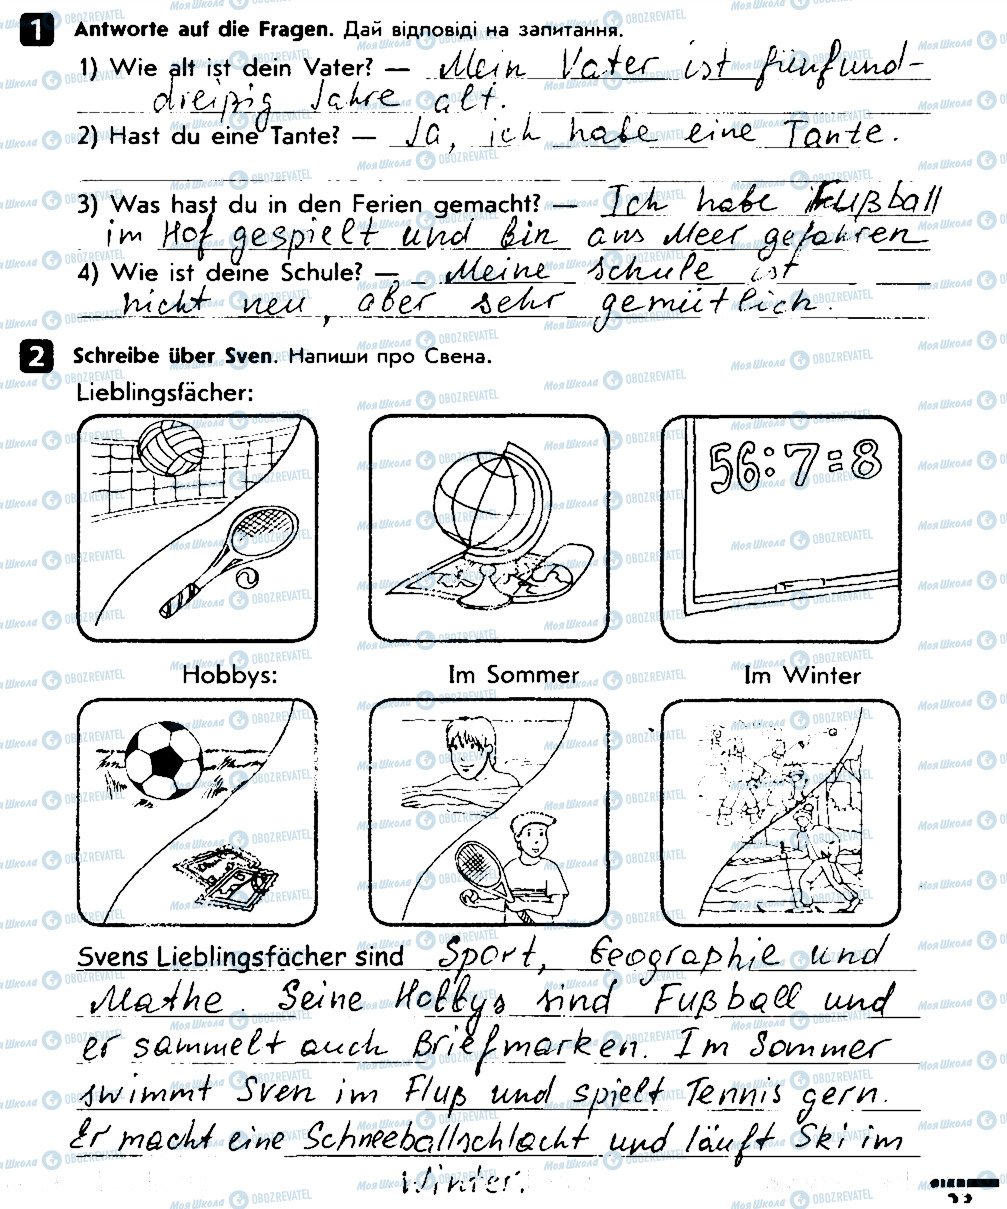 1 Antworte auf die Fragen. Дай відповіді на запитання.
1) Wie alt ist dein Vater? — Mein Vater ist fünfund-
dreißig Jahre alt.
2) Hast du eine Tante? — Ja, ich habe eine Tante.
3) Was hast du in den Ferien gemacht? — Ich habe Fußball
im Hof gespielt und bin ans Meer gefahren
4) Wie ist deine Schule? — Meine schule ist
nicht neu, aber sehr gemütlich.
2 Schreibe über Sven. Напиши про Свена.
Lieblingsfächer:
56:7=8
Hobbys: Im Sommer Im Winter
Svens Lieblingsfächer sind Sport, Geographie und
Mathe. Seine Hobbys sind Fußball und
er sammelt auch Briefmarken. Im Sommer
swimmt Sven im Fluß und spielt Tennis gern.
Er macht eine Schneeballschlacht und läuft Ski im
Winter.
МояШкола OBOZREVATEL